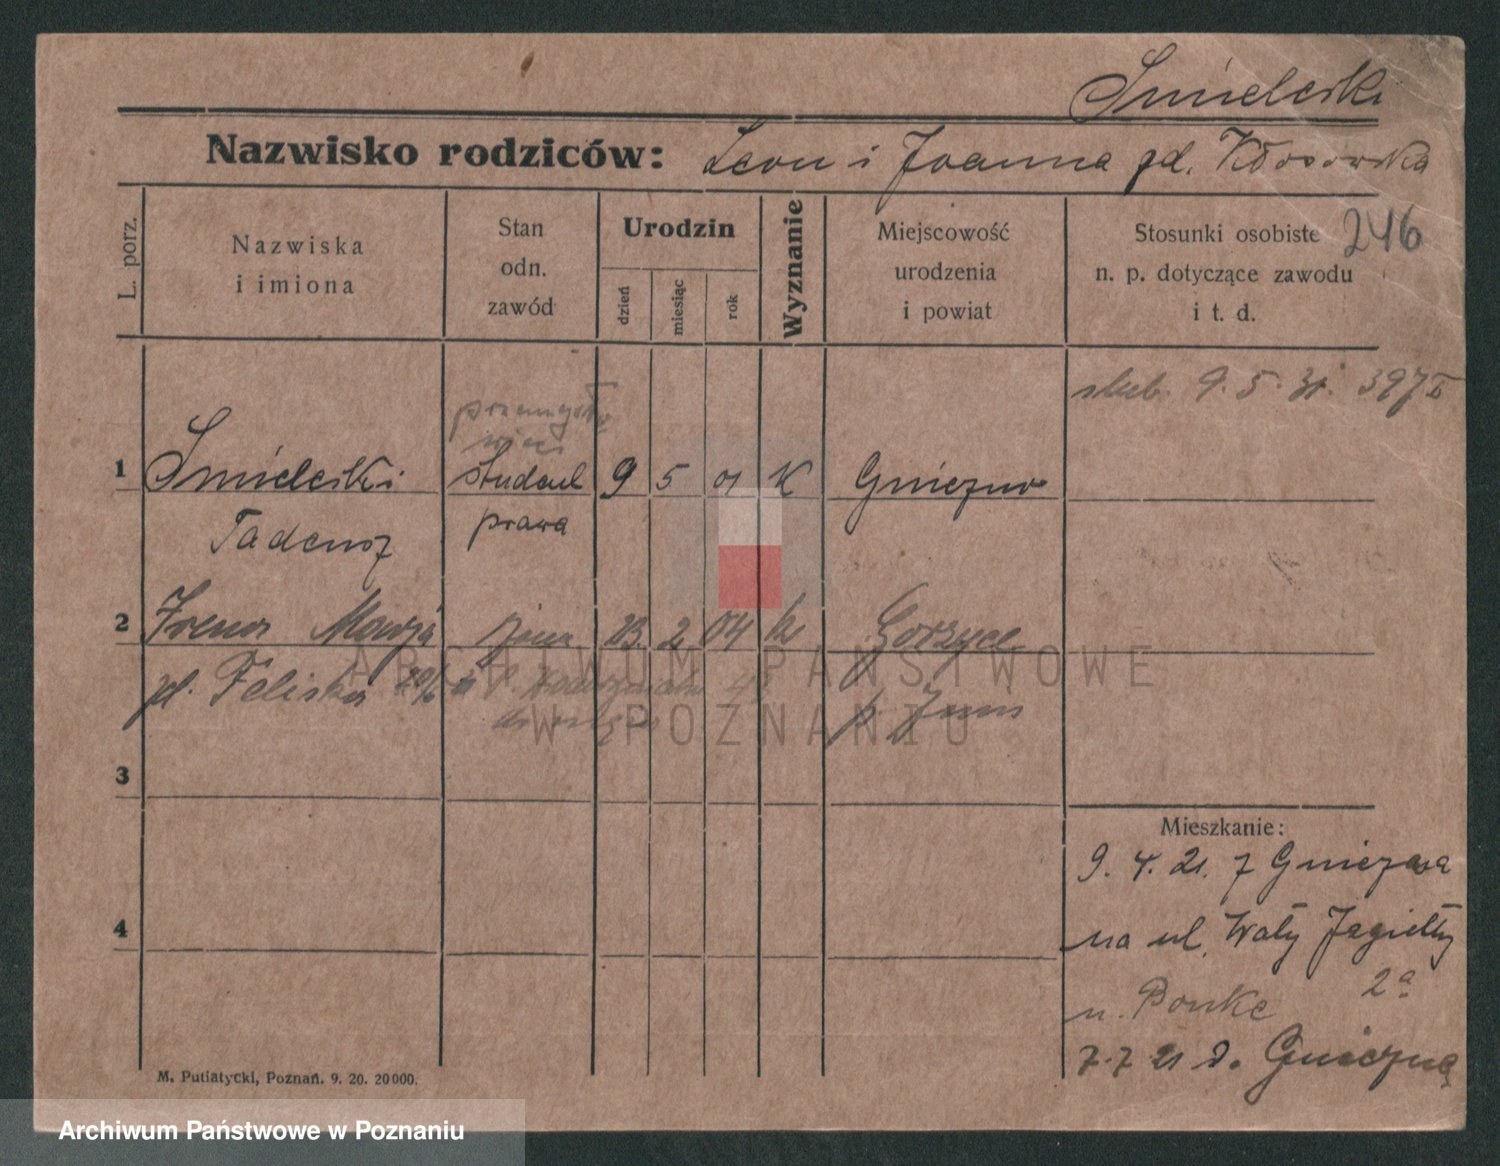 Smielecki
Nazwisko rodziców: Leon i Joanna zd. Kłosowska
246
L. porz.
Nazwiska i imiona
Stan odn. zawód
Urodzin
dzień
miesiąc
rok
Wyznanie
Miejscowość urodzenia i powiat
Stosunki osobiste n. p. dotyczące zawodu i t. d.
9. 5. 31. 397
1 Smielecki student 9 5 01 K Gniezno
Tadeusz prawa
2 Irena Marja żona 23. 2 04 k Gorzyce
zd. Feliska
p. Żnin
3
4
Mieszkanie:
9. 4. 21. z Gniezna
na ul. Wały Jagiełły
2a
7. 7 21 d. Gniezna
ARCHIWUM PAŃSTWOWE
W POZNANIU
M. Putiatycki, Poznań. 9. 20. 20000.
Archiwum Państwowe w Poznaniu